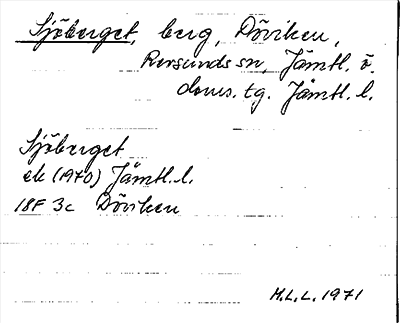 Sjöberget, berg, Döviken,
Revsunds sn, Jämtl. ö.
doms. tg. Jämtl. l.
Sjöberget
ek (1970) Jämtl. l.
18F 3c Döviken
H.L.L. 1971